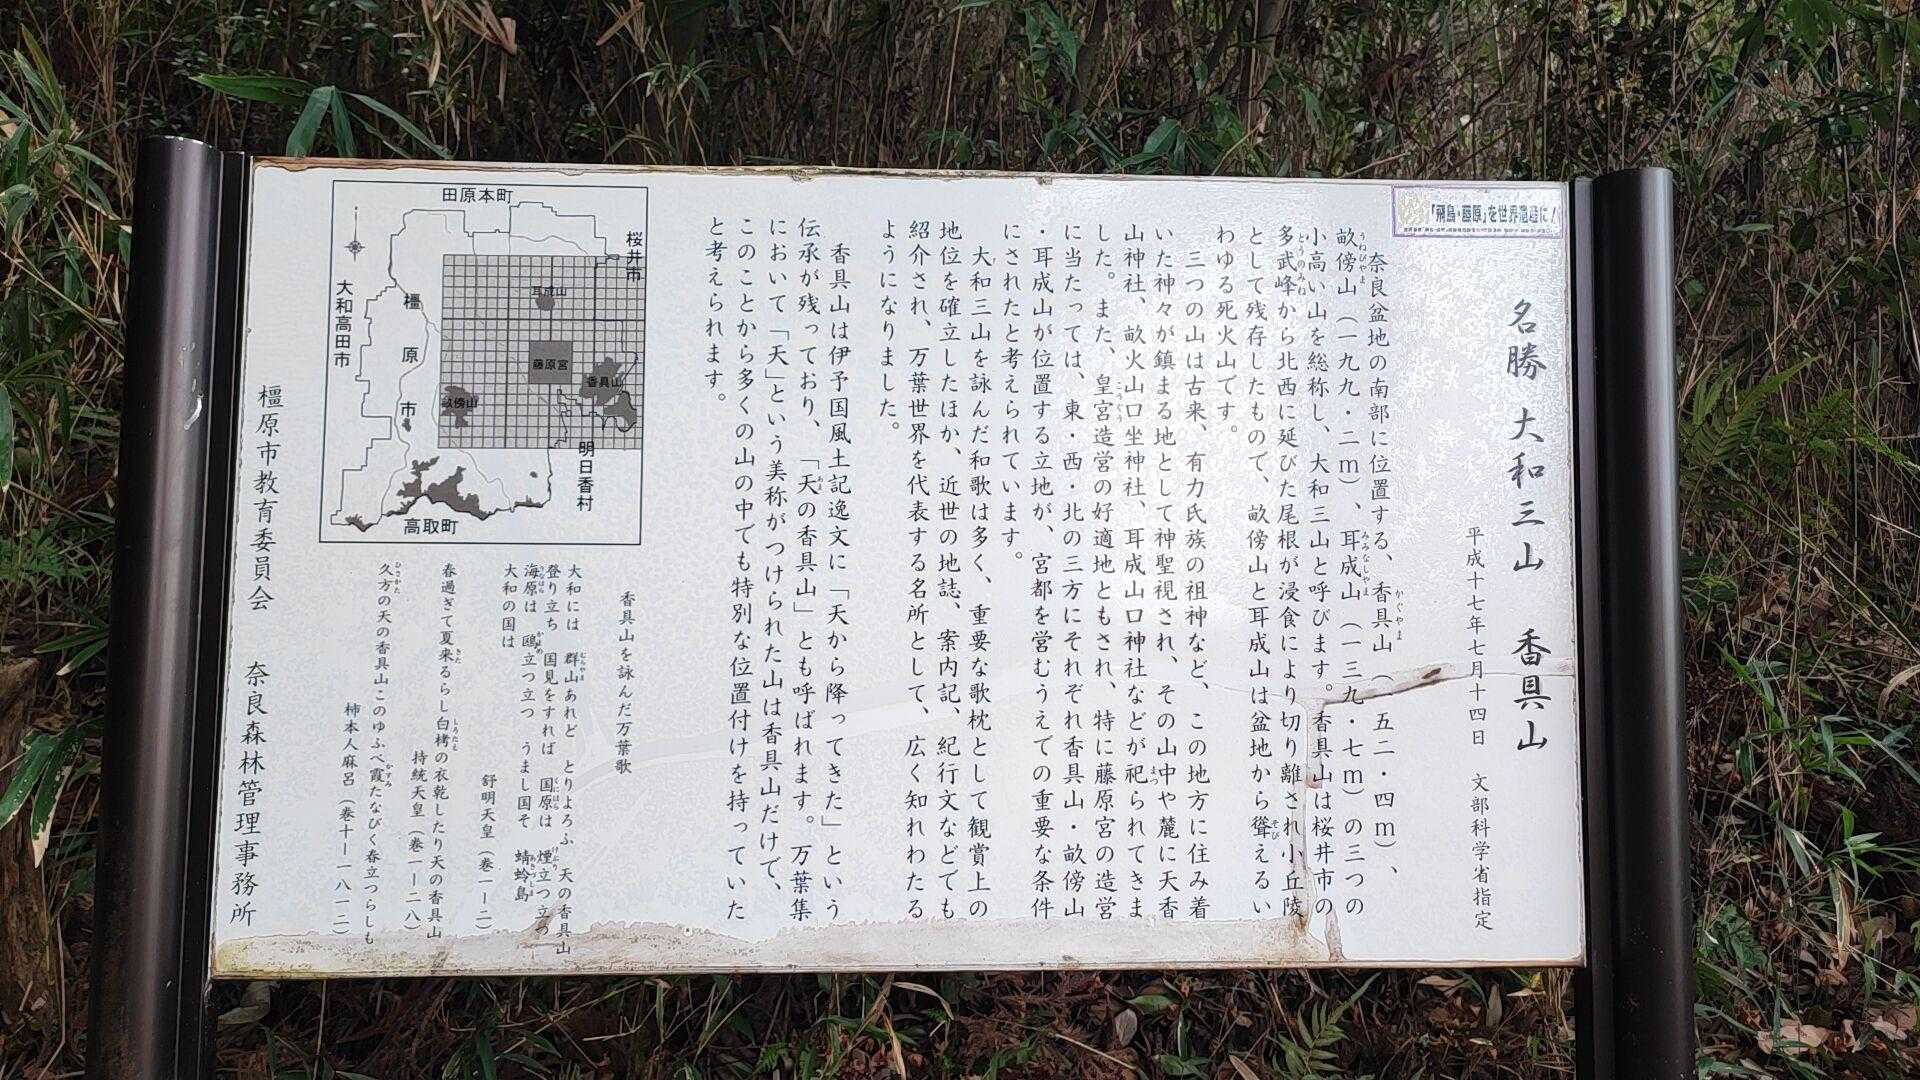 「飛鳥・藤原」を世界遺産に!
名勝 大和三山 香具山
平成十七年七月十四日 文部科学省指定
奈良盆地の南部に位置する、香具山（一五二・四m）、
畝傍山（一九九・二m）、耳成山（一三九・七m）の三つの
小高い山を総称し、大和三山と呼びます。香具山は桜井市の
多武峰から北西に延びた尾根が浸食により切り離され小丘陵
として残存したもので、畝傍山と耳成山は盆地から聳えるい
わゆる死火山です。
三つの山は古来、有力氏族の祖神など、この地方に住み着
いた神々が鎮まる地として神聖視され、その山中や麓に天香
山神社、畝火山口坐神社、耳成山口神社などが祀られてきま
した。また、皇宮造営の好適地ともされ、特に藤原宮の造営
に当たっては、東・西・北の三方にそれぞれ香具山・畝傍山
・耳成山が位置する立地が、宮都を営むうえでの重要な条件
にされたと考えられています。
大和三山を詠んだ和歌は多く、重要な歌枕として観賞上の
地位を確立したほか、近世の地誌、案内記、紀行文などでも
紹介され、万葉世界を代表する名所として、広く知れわたる
ようになりました。
香具山は伊予国風土記逸文に「天から降ってきた」という
伝承が残っており、「天の香具山」とも呼ばれます。万葉集
において「天」という美称がつけられた山は香具山だけで、
このことから多くの山の中でも特別な位置付けを持っていた
と考えられます。
田原本町
桜井市
大和高田市
橿原市
耳成山
藤原宮
香具山
畝傍山
明日香村
高取町
香具山を詠んだ万葉歌
大和には 群山あれど とりよろふ 天の香具山
登り立ち 国見をすれば 国原は 煙立つ立つ
海原は 鴎立つ立つ うまし国そ 蜻蛉島
大和の国は
舒明天皇（巻一ー二）
春過ぎて夏来るらし白栲の衣乾したり天の香具山
持統天皇（巻一ー二八）
久方の天の香具山このゆふべ霞たなびく春立つらしも
柿本人麻呂（巻十ー一八一二）
橿原市教育委員会 奈良森林管理事務所